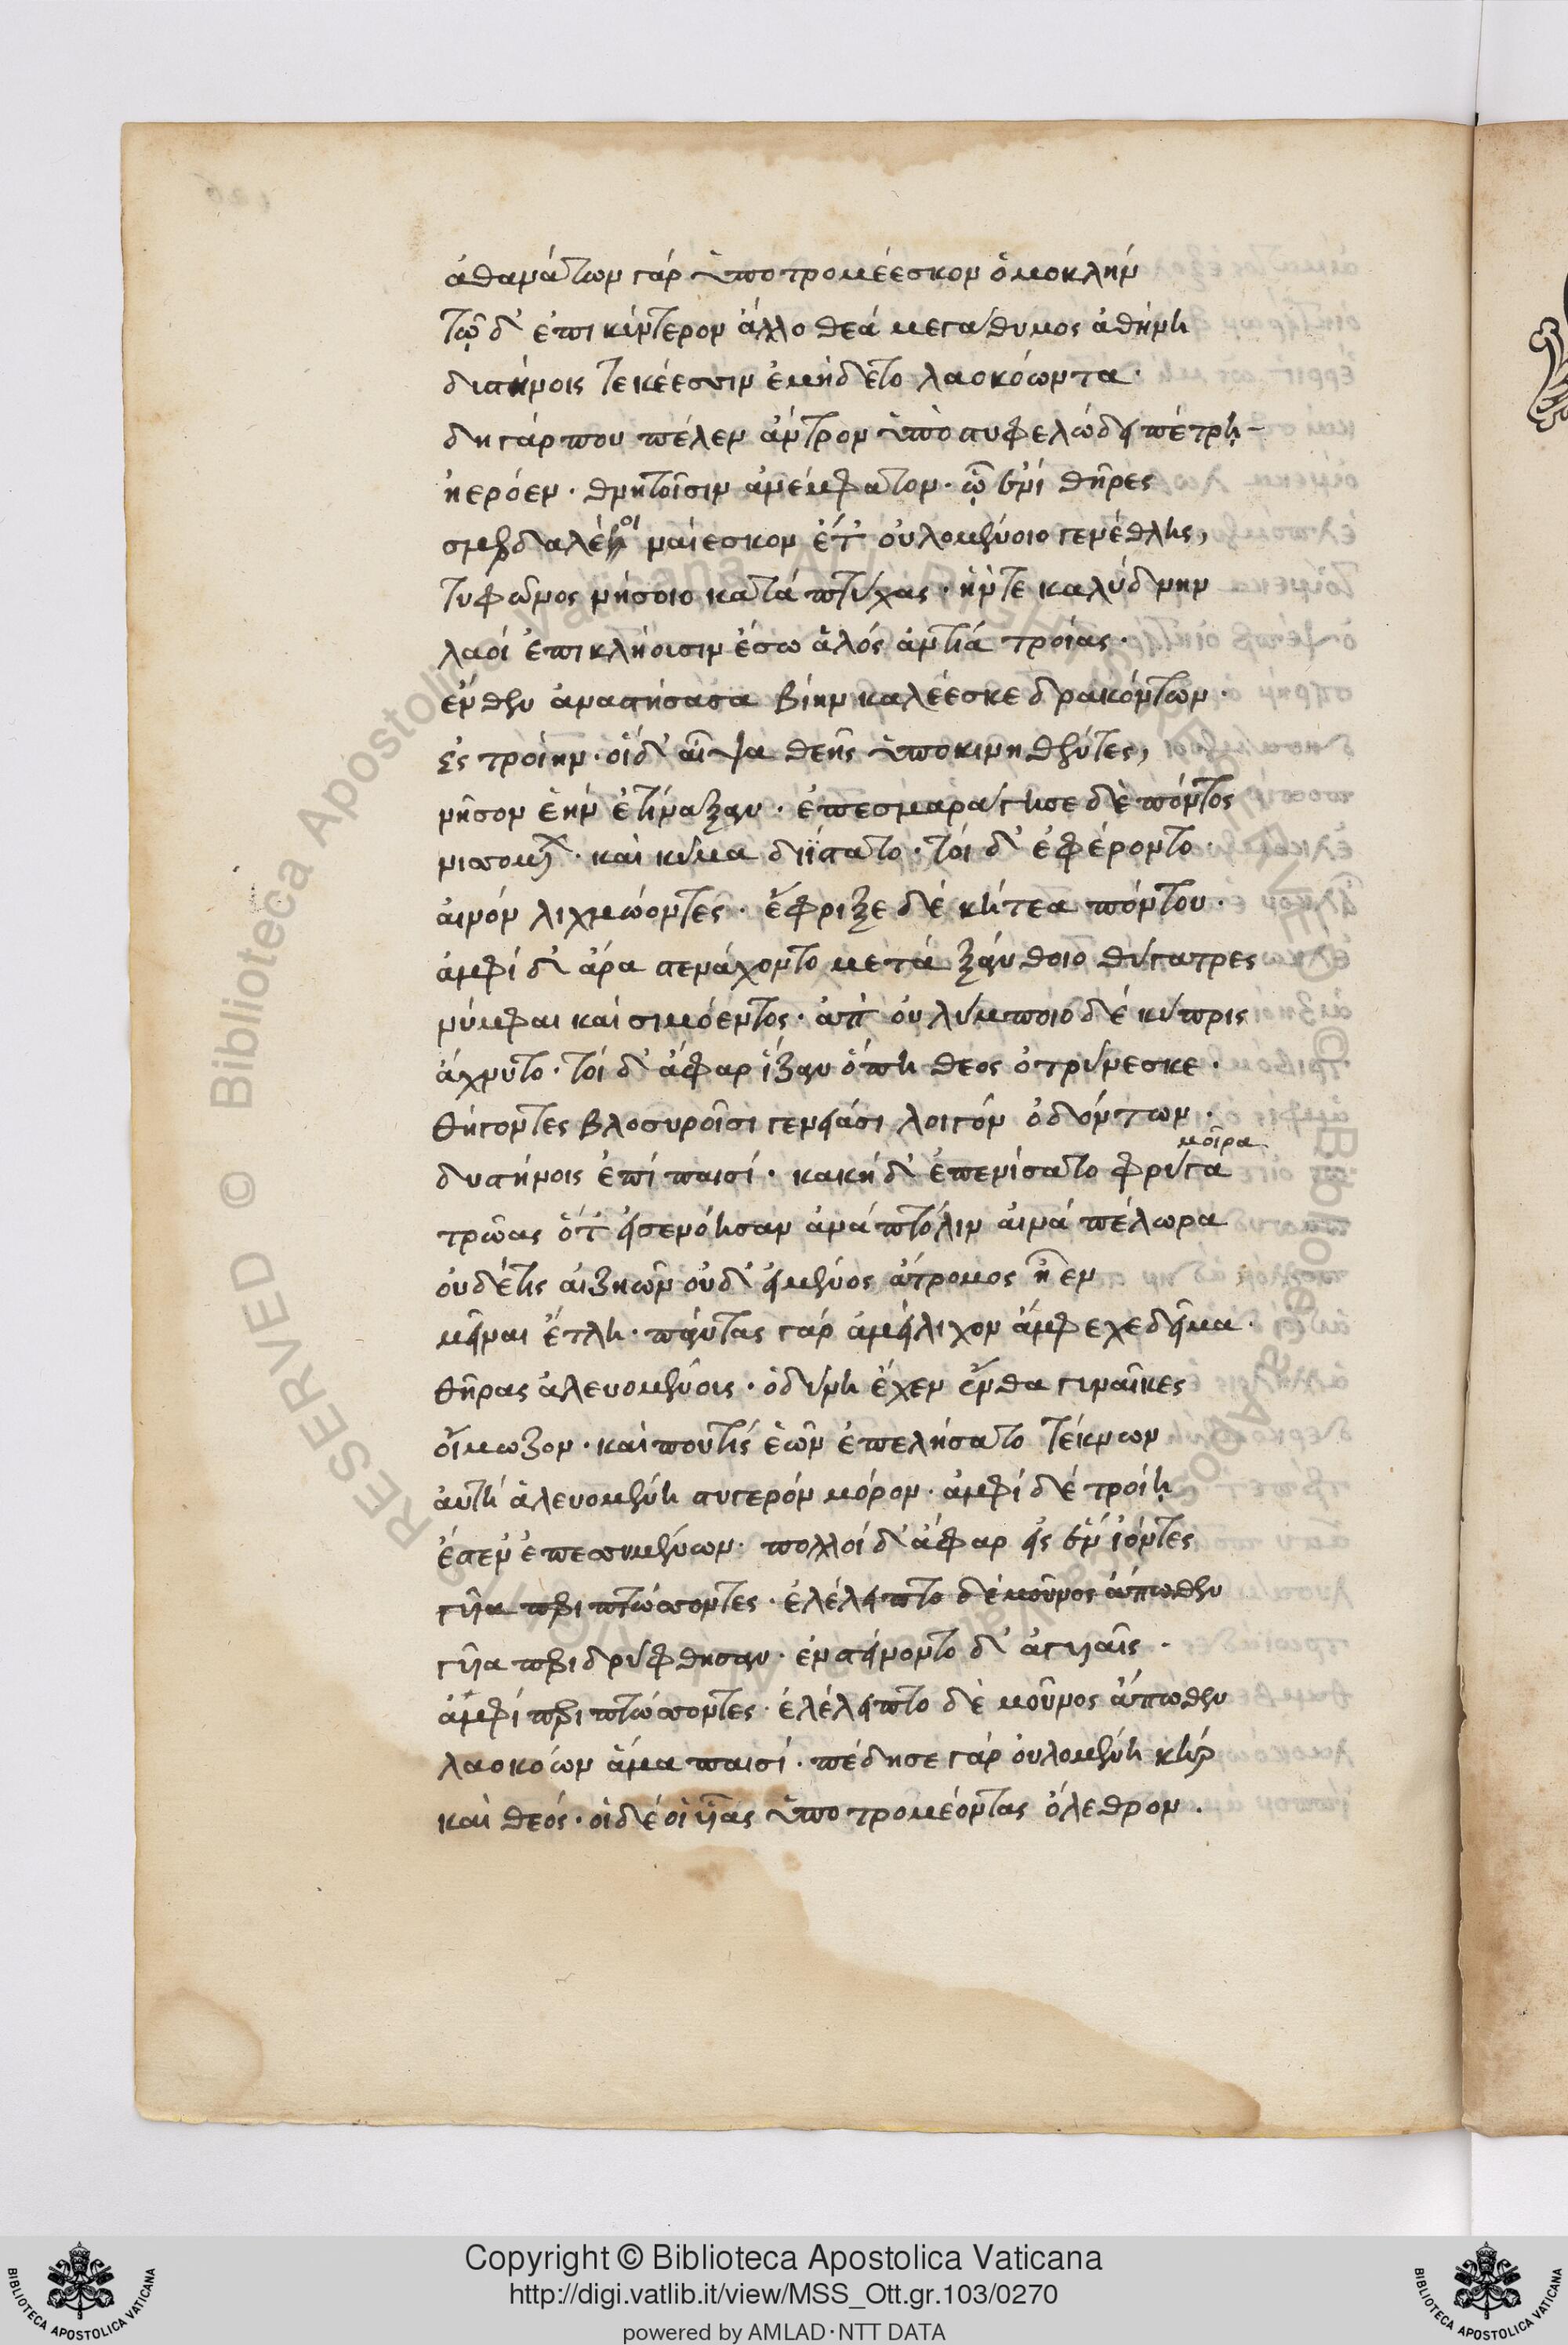 ἀθανάτων γάρ ὑποτρομέεσκον ὁμοκλήν
τῶ δ' ἐπι κύντερον ἄλλο θεά μεγάθυμος ἀθήνη
δυστήνοις τεκέεσσιν ἐμήδετο λαοκόωντα·
δη γάρ που πέλεν ἄντρον ὑπὸ στυφελώδει πέτρῃ
ἠερόεν· θνητοῖσιν ἀνέμβατον· ᾧ ἔνι θῆρες
σμερδαλέοι ναίεσκον ἔτ' οὐλομένοιο γενέθλης,
τυφῶνος νήσοιο κατά πτύχας· ἥντε καλύδνην
λαοί ἐπικλήοισιν ἔσω ἁλός ἀντιά τροίας·
ἔνθεν ἀναστήσασα βίην καλέεσκε δρακόντων·
ἐς τροίην· οἱ δ' αἶψα θεῆς ὑποκινηθέντες,
νῆσον ὅλην ἐτίναξαν· ἐπεσμαράγησε δὲ πόντος
νισσομέν· καὶ κῦμα διΐστατο· τοί δ' ἐφέροντο·
αἰνόν λιχμώοντες· ἔφριξε δέ κήτεα πόντου·
ἀμφί δ' ἄρα στενάχοντο μετά ξάνθοιο θύγατρες
νύμφαι καί σιμόεντος· ἀπ' οὐλύμποιο δέ κύπρις
ἄχνυτο· τοί δ' ἄφαρ ἷξαν ὅπη θεος ὀτρύνεσκε·
θήγοντες βλοσυροῖσι γενειάσι λοιγόν ὀδόντων·
δυστήνοις ἐπί παισί· κακή δ' ἐπενίσατο φρύγα
μοῖρα
τρῶας ὅτ' εἰσενόησαν ἀνά πτόλιν αἰνά πέλωρα
οὐδέτις αἰζηῶν οὐδ' εἰ μένος ἄτρομος ἦεν
μεῖναι ἔτλη· πάντας γάρ ἀμείλιχον ἄμφεχε δεῖμα·
θῆρας ἀλευομένοις· ὀδύνη ἔχεν ἔνθα γυναῖκες
οἴμωζον· καί που τίς ἑῶν ἐπελήσατο τέκνων
αὐτή ἀλευομένη στυγερόν μόρον· ἀμφί δέ τροίῃ
ἔστεν' ἐπεσσυμένων· πολλοί δ' ἄφαρ εἰς ἕν ἰόντες
γυῖα περιπτώσσοντες· ἐλέλειπτο δέ μοῦνος ἄπωθεν
γυῖα περιδρύφθησαν· ἐνστείνοντο δ' ἀγυιαῖς·
ἀμφί περιπτώσσοντες· ἐλέλειπτο δὲ μοῦνος ἄπωθεν
λαοκόων ἅμα παισί· πέδησε γάρ οὐλομένη κήρ
καὶ θεός· οἱ δέ οἱ υἷας ὑποτρομέοντας ὄλεθρον.
Copyright © Biblioteca Apostolica Vaticana
http://digi.vatlib.it/view/MSS_Ott.gr.103/0270
powered by AMLAD·NTT DATA